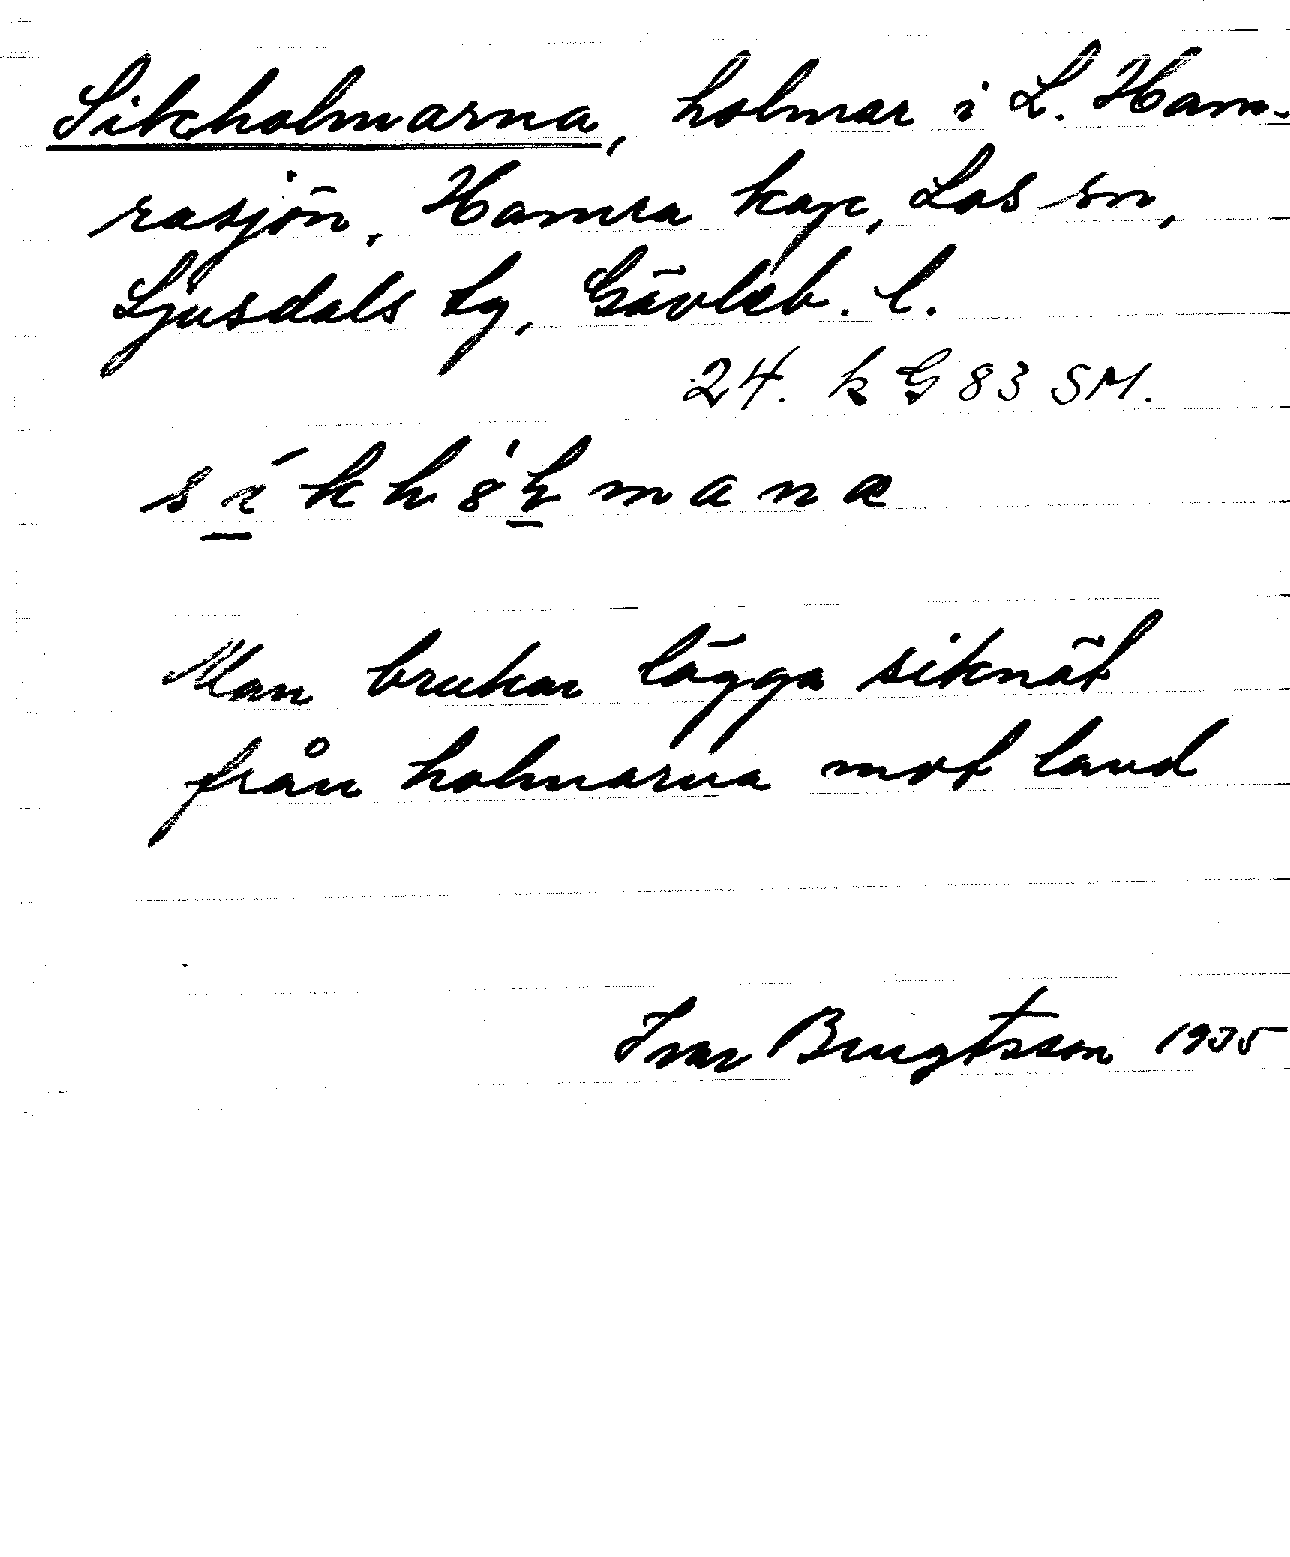 Sikholmarna, holmar i L. Ham-
rasjön, Hamra kap, Los sn,
Ljusdals tg, Gävleb. l.
24. k G 83 SM.
Man brukar lägga siknät
från holmarna mot land
Ivar Bengtsson 1935